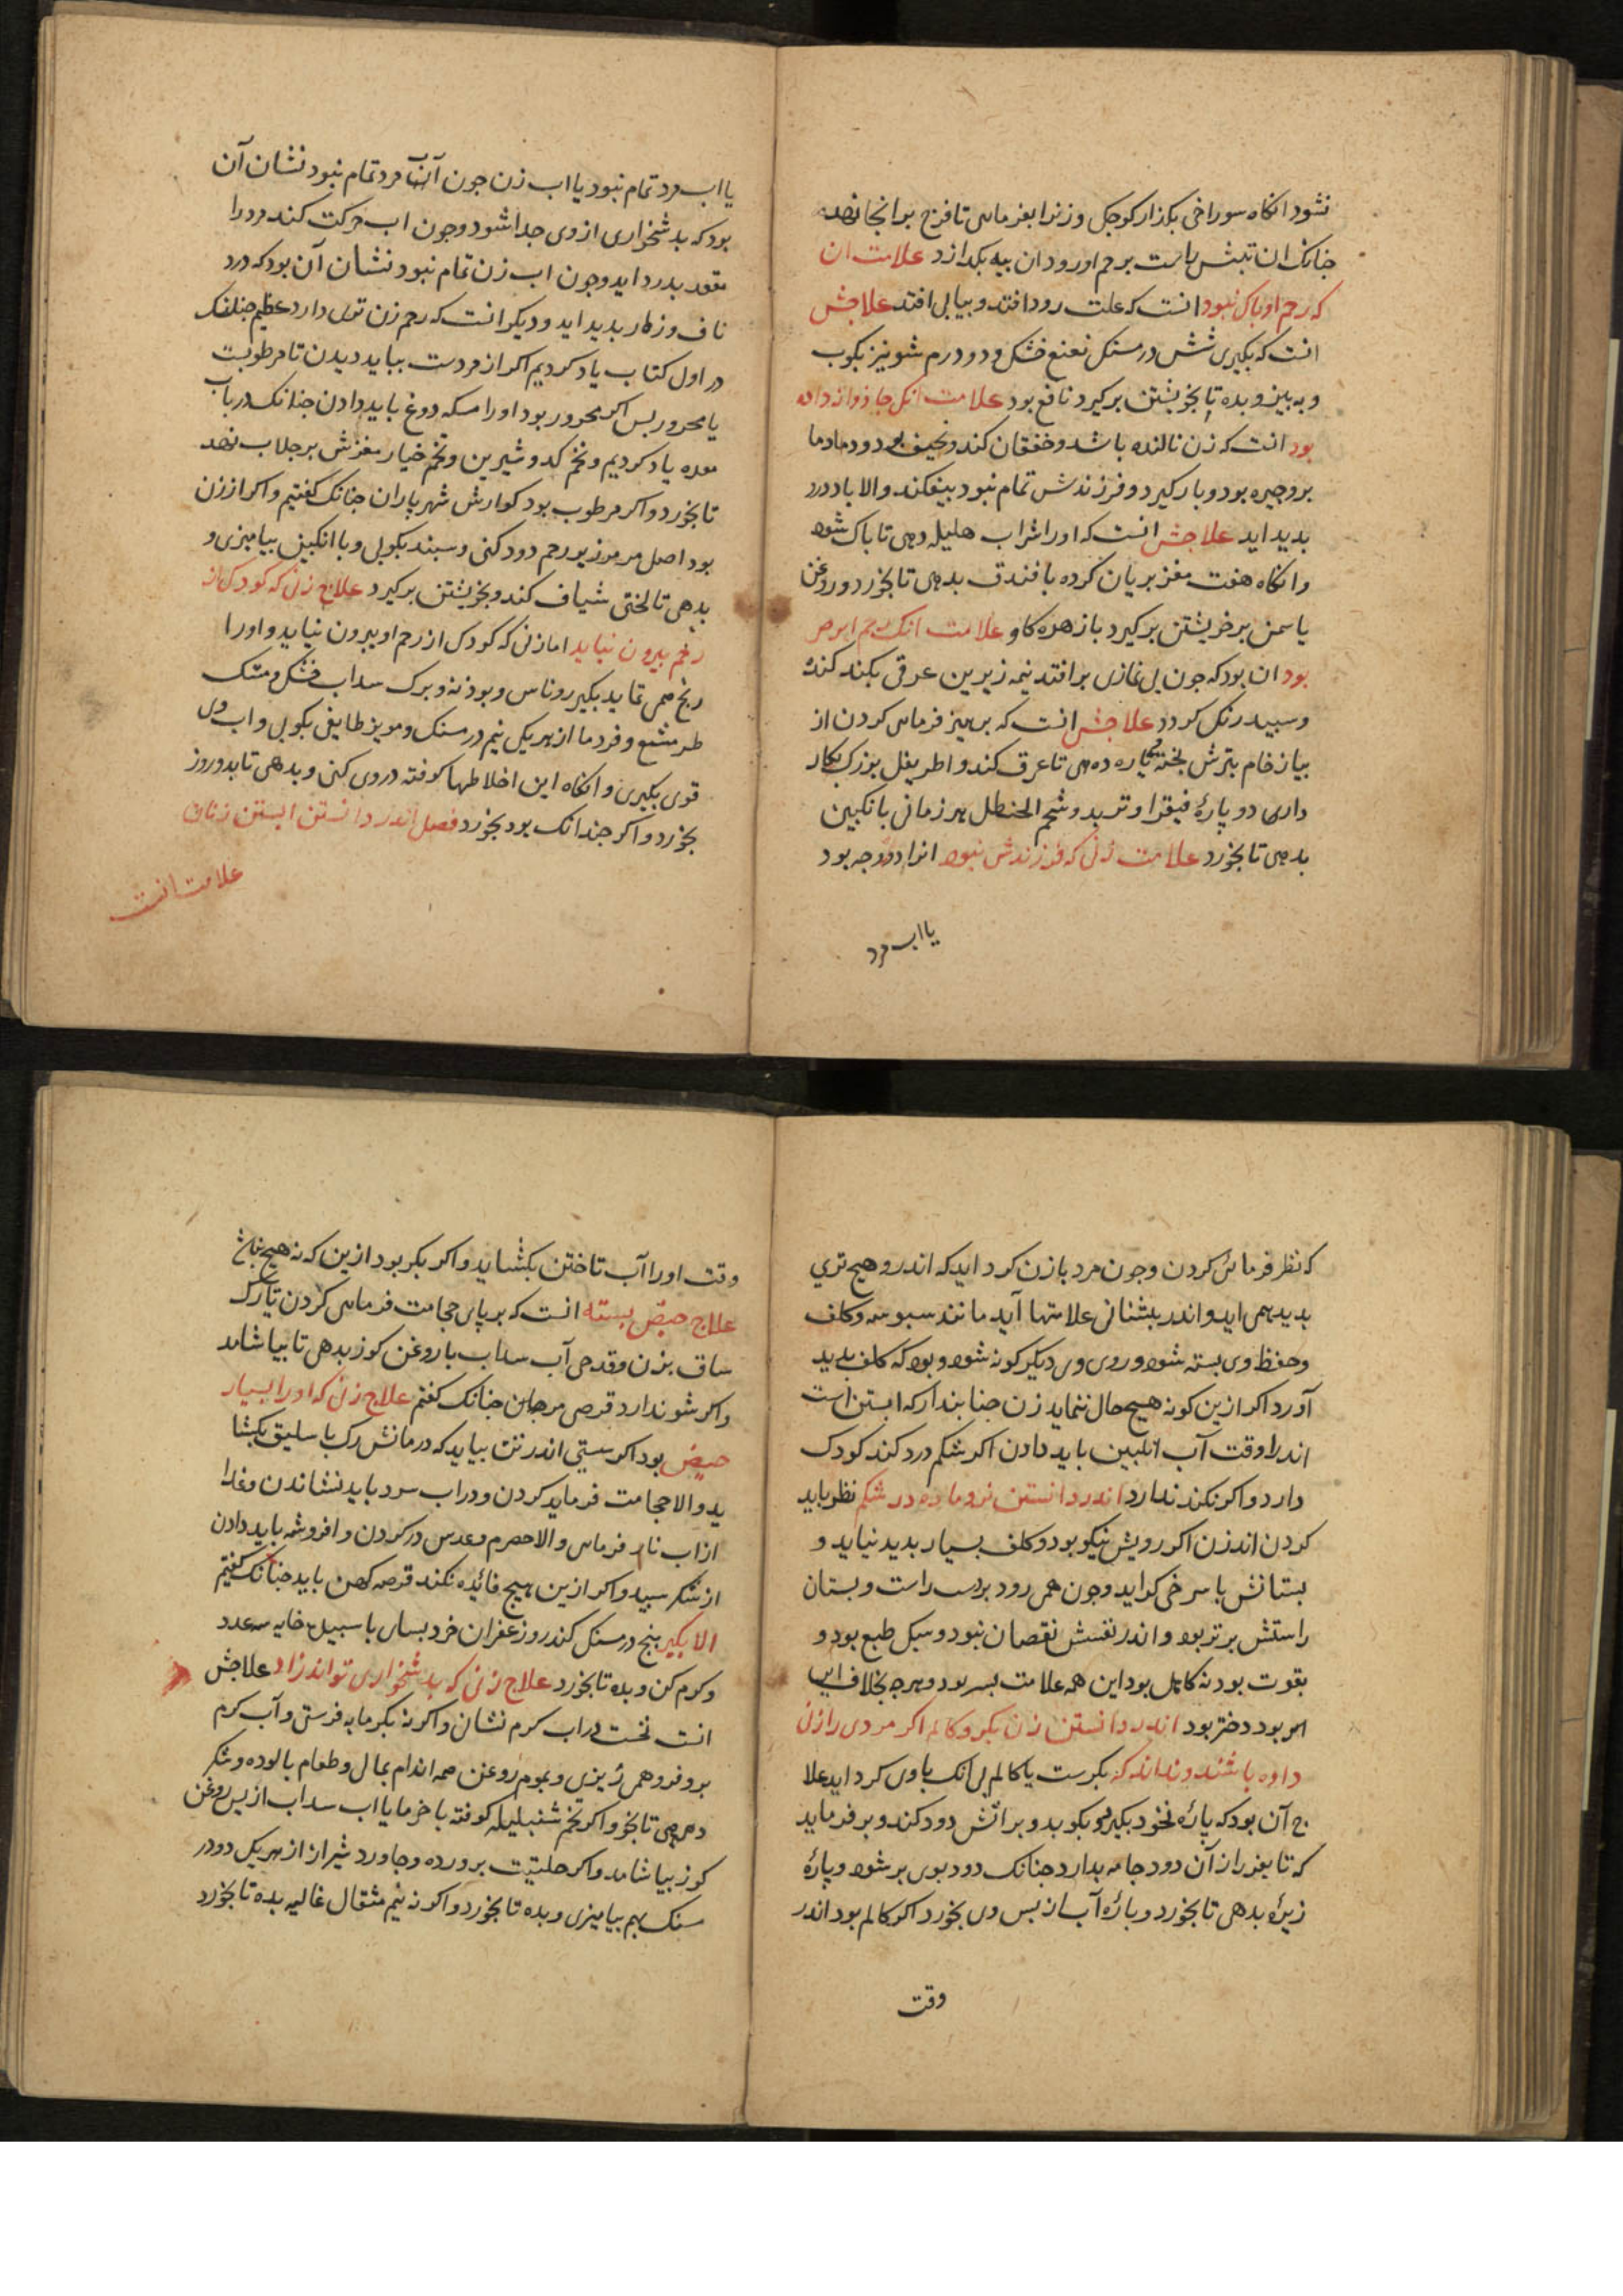 نشود انکاه سوراخی بکذار کوجک و زنرا بفرماى تا فرج بر انجا نهد
جنانک ان تبش راست برحم او رود ان بیه بکدازد علامت ان
که رحم او پاک نبود انست که علت رود افتد و بیابی افتد علاجش
انست که بکیری شش درمسنک نعنع خشک و دو درم شونیز بکوب
و به بیز و بده تا بخویشتن برکیرد نافع بود علامت انک جادوا زده
بود انست که زن نالنده باشد و خفقان کند و نحیف بود و دمادما
بر و جیره بود و بار کیرد و فرزندش تمام نبود بیفکند والا باد و درد
بدید اید علاجش انست که او را شراب هلیله دهى تا باک شود
و انکاه هفت مغز بریان کرده با فندق بدهى تا بخورد و روغن
یاسمن بر خویشتن برکیرد با زهره کاو علامت انک رحم ابرص
بود ان بود که جون بی غازى بر افتد نیمه زیرین عرقی بکند کنده
و سبید رنک کردد علاجش انست که برهیز فرماى کردن از
بیاز خام بترش بخته و یکاره ده مى تا عرق کند و اطریفل بزرک بکار
دارى دو پارۀ فیقرا و تربد و شحم الحنظل هر زمانی بانکبین
بدهى تا بخورد علامت زنی که فرزندش نبود انرا دو وجه بود
یا اب مرد
یا اب مرد تمام نبود یا اب زن جون آن آب مرد تمام نبود نشان آن
بود که بدشخواری از وی جدا شود و جون اب حرکت کند مرد را
مقعد بدرد اید و جون اب زن تمام نبود نشان آن بود که درد
ناف و زهار بدید اید و دیکر انست که رحم زن تری دارد عظیم جنانک
در اول کتاب یاد کردیم اکر از مردست بباید دیدن تا مرطوبست
یا محرور بس اکر محرور بود او را مسکه دوغ باید دادن جنانک در باب
معده یاد کردیم و تخم کدو شیرین و تخم خیار مغزش بر جلاب نهد
تا بخورد و اکر مرطوب بود کوارش شهریاران جنانک کفتیم و اکر از زن
بود اصل مر مر زیر رحم دود کنی و سبند بکوبى و با انکبین بیامیزی و
بدهى تا لختی شیاف کند و بخویشتن برکیرد علاج زنی که کودک از
رحم بیرون نیاید اما زنی که کودک از رحم او بیرون نیاید و او را
رنج همی نماید بکیر روناس و بوذنه و برک سداب خشک و مشک
طرمشیع و فردما از هریکی نیم درمسنک و مویز طایفی بکوبى و اب وى
قوی بکیری و انکاه این اخلاطها کوفته در وی کنی و بدهى تا بدو روز
بخورد و اکر جندانک بود بخورد فصل اندر دانستن ابستن زنان
علامت انست
که نظر فرمائی کردن و جون مرد با زن کرد اید که اندرو هیج تری
بدید همی اید و اندر بشتانی علامتها آید مانند سبوسه و کلف
و حفظ وی بسته شود و روی وی دیکر کونه شود و بود که کلف بدید
آورد اکر ازین کونه هیج حال ننماید زن جنا بندار که ابستن است
اندرا وقت آب انکبین باید دادن اکر شکم درد کند کودک
دارد و اکر نکند ندارد اندر دانستن نر و ماده در شکم نظر باید
کردن اندر زن اکر رویش نیکو بود و کلف بسیار بدید نیاید و
بستانش با سرخی کراید و جون همی رود بر دست راست و بستان
راستش برتر بود و اندر نفسش نقصان نبود و سبک طبع بود و
بقوت بود نه کاهل بود این همه علامت بسر بود و هرج بخلاف این
امر بود دختر بود اندر دانستن زن بکر و کالم اکر مردی را زنی
داده باشند و نداند که بکرست یا کالم بی انک با وى کرد اید علا
ج آن بود که پارۀ نخود بکیرد و بکوبد و بر اتش دود کند و بر فرماید
که تا بغزرا ز آن دود جامه بدارد جنانک دود بوى بر شود و پارۀ
زیرۀ بدهى تا بخورد و بارۀ آب از بس وى بخورد اکر کالم بود اندر
وقت
وقت او را آب تاختن بکشاید و اکر بکر بود ازین که نه هیج نباش
علاج حیض بسته انست که بر پاى حجامت فرماى کردن تا رک
ساق بزن و قدحى آب سداب با روغن کوز بدهى تا بیاشامد
و اکر شو ندارد قرص مرجان جنانک کفتم علاج زنی که او را بسیار
حیض بود اکر سستی اندر تنت بیاید که درمانش رک باسلیق بکشا
ید والا حجامت فرماید کردن و در اب سرد باید نشاندن و غذا
از اب نار فرماى والا حصرم و عدس در کردن و افروشه باید دادن
از شکر سبید و اکر ازین هیج فائده نکند قرصه کهن باید جنانک کفتیم
الا بکیر بنج درمسنک کندر و زعفران خرد بساى با سبیده خایه سه عدد
و کرم کن و بده تا بخورد علاج زنی که بدشخواری تواند زاد علاجش
انست نخست در اب کرم نشان و اکر نه بکرمابه فرستی و آب کرم
برو فرو همی ریزی و بموم روغن همه اندام بمال و طعام بالوده و شکر
دهى تا بخورد و اکر تخم شنبلیله کوفته با خرما یا اب سداب از بس روغن
کوز بیاشامد و اکر حلتیت برورده و جاورد شیراز از هریکی دو در
سنک بهم بیامیزی و بده تا بخورد و اکر نه نیم مثقال غالیه بده تا بخورد